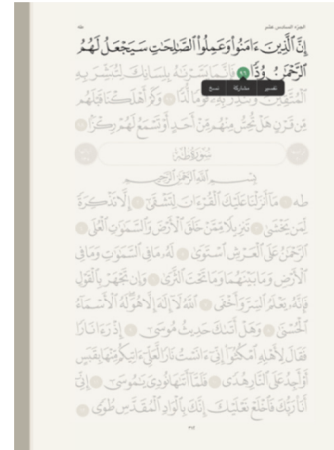 الجزء السادس عشر
طه
إِنَّ ٱلَّذِينَ ءَامَنُوا۟ وَعَمِلُوا۟ ٱلصَّٰلِحَٰتِ سَيَجْعَلُ لَهُمُ
ٱلرَّحْمَٰنُ وُدًّا ٩٦ فَإِنَّمَا يَسَّرْنَٰهُ بِلِسَانِكَ لِتُبَشِّرَ بِهِ
تفسير مشاركة نسخ
ٱلْمُتَّقِينَ وَتُنذِرَ بِهِۦ قَوْمًا لُّدًّا وَكَمْ أَهْلَكْنَا قَبْلَهُم
مِّن قَرْنٍ هَلْ تُحِسُّ مِنْهُم مِّنْ أَحَدٍ أَوْ تَسْمَعُ لَهُمْ رِكْزًۢا
سُورَةُ طه
بِسْمِ ٱللَّهِ ٱلرَّحْمَٰنِ ٱلرَّحِيمِ
طه مَآ أَنزَلْنَا عَلَيْكَ ٱلْقُرْءَانَ لِتَشْقَىٰٓ إِلَّا تَذْكِرَةً
لِّمَن يَخْشَىٰ تَنزِيلًا مِّمَّنْ خَلَقَ ٱلْأَرْضَ وَٱلسَّمَٰوَٰتِ ٱلْعُلَى
ٱلرَّحْمَٰنُ عَلَى ٱلْعَرْشِ ٱسْتَوَىٰ لَهُۥ مَا فِى ٱلسَّمَٰوَٰتِ وَمَا فِى
ٱلْأَرْضِ وَمَا بَيْنَهُمَا وَمَا تَحْتَ ٱلثَّرَىٰ وَإِن تَجْهَرْ بِٱلْقَوْلِ
فَإِنَّهُۥ يَعْلَمُ ٱلسِّرَّ وَأَخْفَى ٱللَّهُ لَآ إِلَٰهَ إِلَّا هُوَ لَهُ ٱلْأَسْمَآءُ
ٱلْحُسْنَىٰ وَهَلْ أَتَىٰكَ حَدِيثُ مُوسَىٰٓ إِذْ رَءَا نَارًا
فَقَالَ لِأَهْلِهِ ٱمْكُثُوٓا۟ إِنِّىٓ ءَانَسْتُ نَارًا لَّعَلِّىٓ ءَاتِيكُم مِّنْهَا بِقَبَسٍ
أَوْ أَجِدُ عَلَى ٱلنَّارِ هُدًى فَلَمَّآ أَتَىٰهَا نُودِىَ يَٰمُوسَىٰٓ إِنِّىٓ
أَنَا۠ رَبُّكَ فَٱخْلَعْ نَعْلَيْكَ إِنَّكَ بِٱلْوَادِ ٱلْمُقَدَّسِ طُوًى